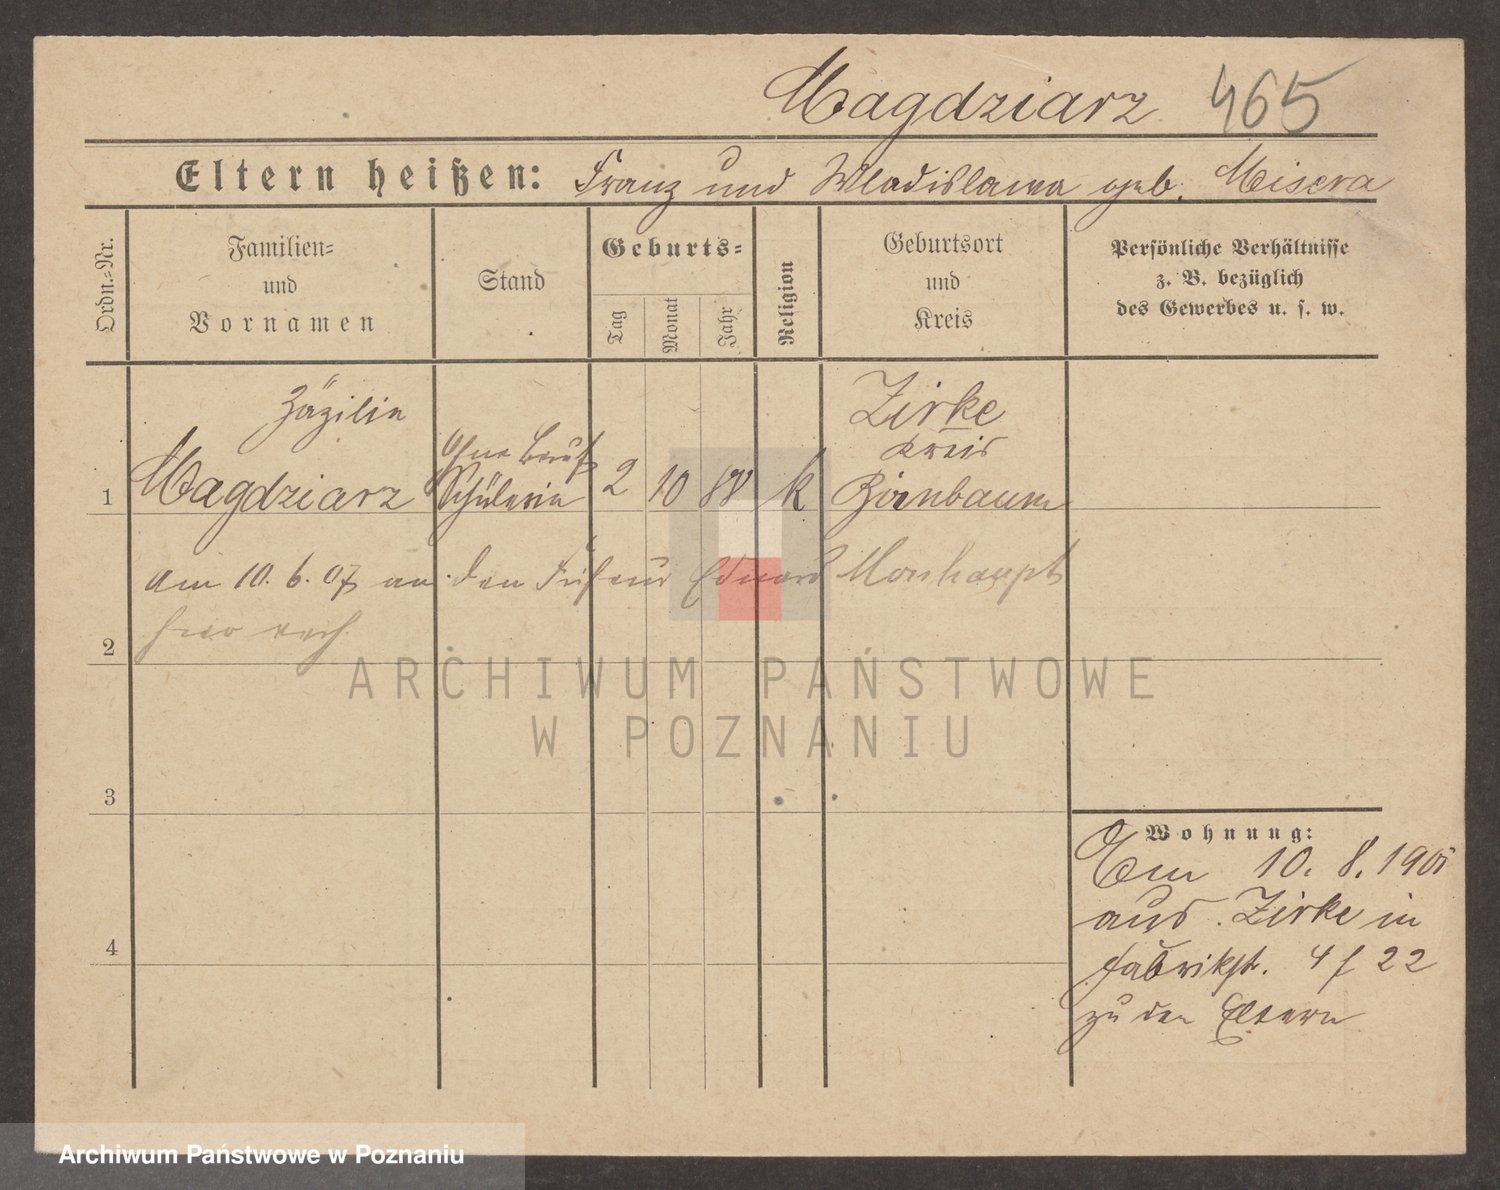 Magdziarz 465
Eltern heißen: Franz und Wladislawa geb. Misera
Ordn.-Nr.
Familien-
und
Vornamen
Stand
Geburts-
Tag
Monat
Jahr
Religion
Geburtsort
und
Kreis
Persönliche Verhältnisse
z. B. bezüglich
des Gewerbes u. s. w.
Zäzilie
Zirke
ohne Beruf
Kreis
1 Magdziarz Schülerin 2 10 88 k Birnbaum
am 10. 6. 07 an den Friseur Eduard Monhaupt
hier
2
ARCHIWUM PAŃSTWOWE
W POZNANIU
3
4
Wohnung:
Am 10. 8. 1901
aus Zirke in
Fabrikstr. 4 f 22
zu den Eltern
Archiwum Państwowe w Poznaniu